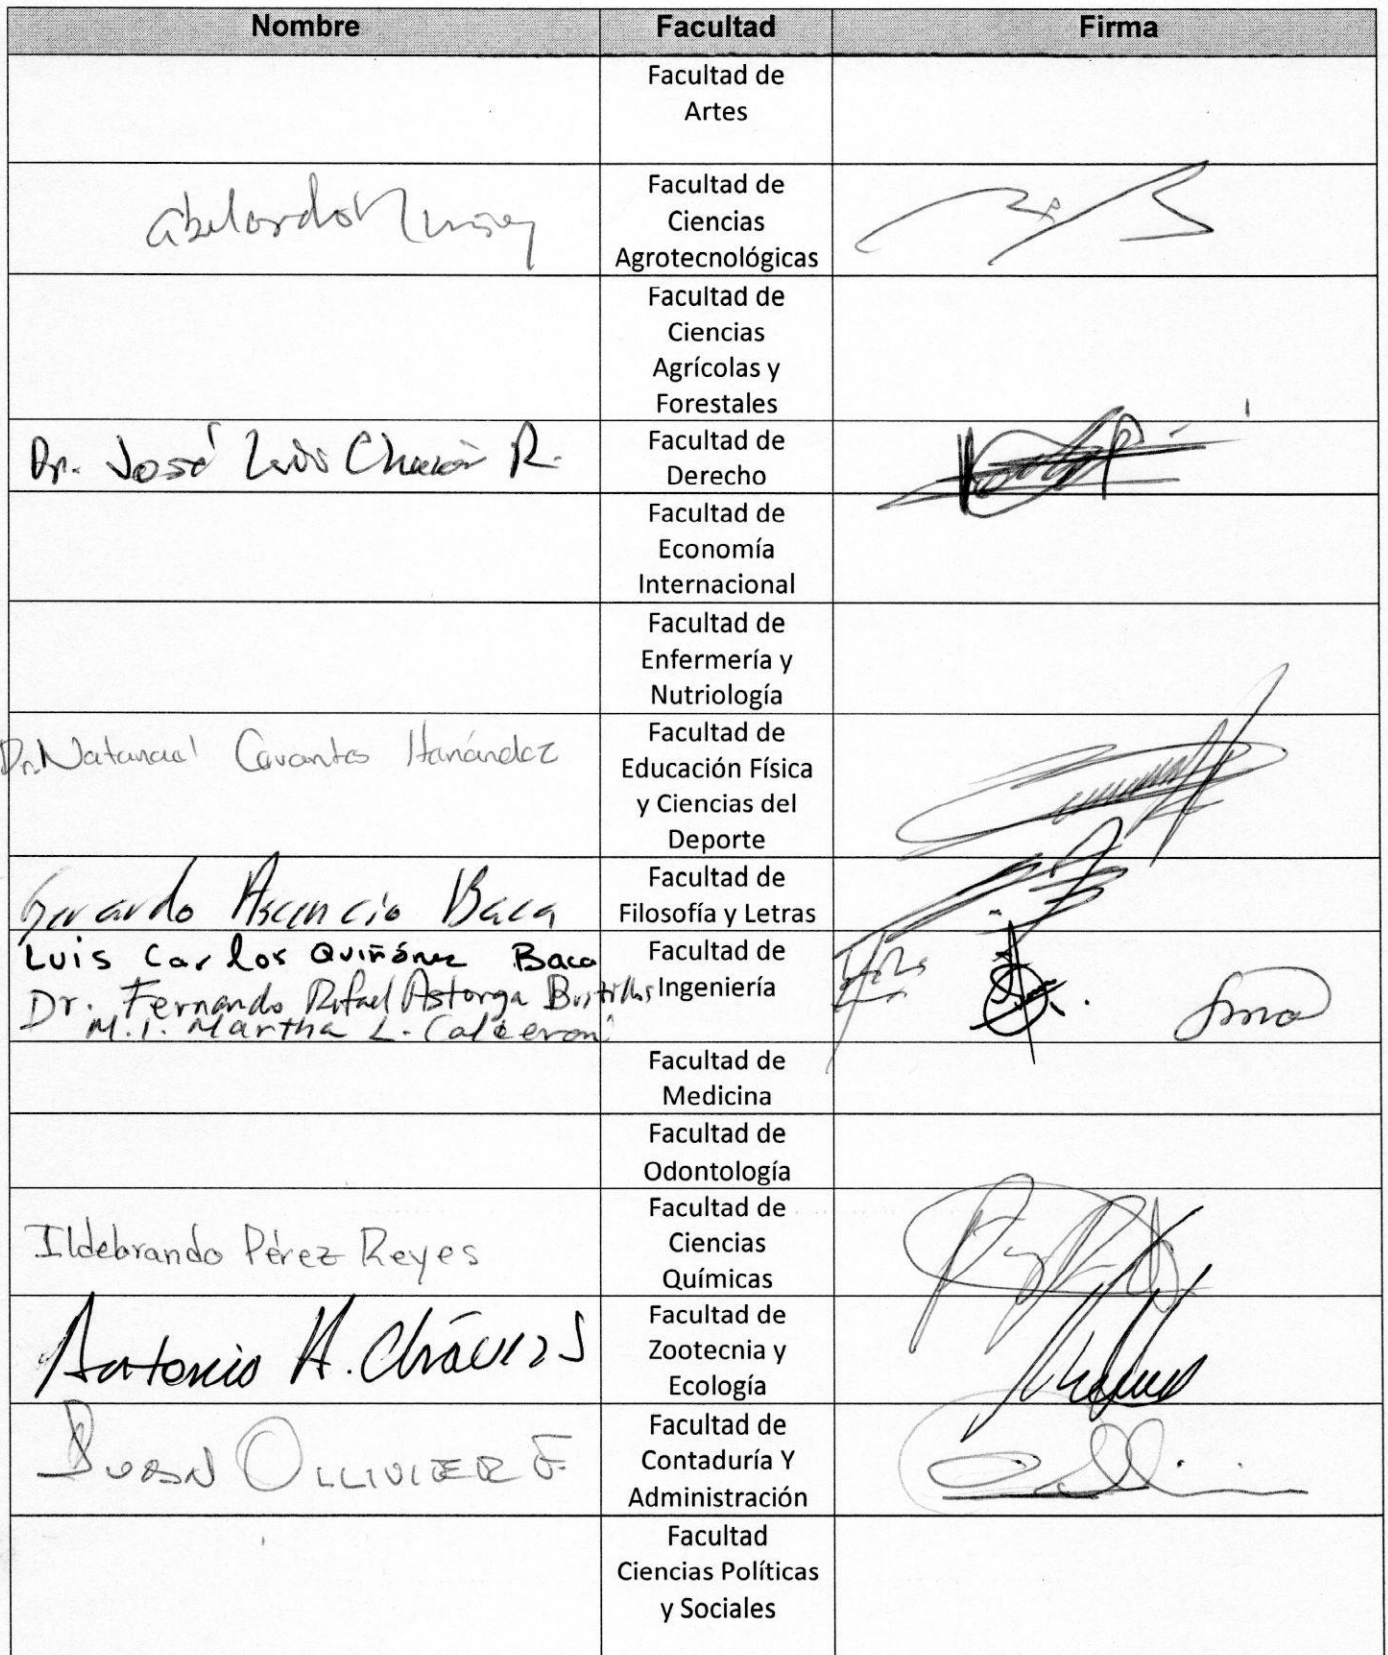 Nombre Facultad Firma
Facultad de
Artes
Abelardo Núñez
Facultad de
Ciencias
Agrotecnológicas
Facultad de
Ciencias
Agrícolas y
Forestales
Dr. José Luis Chacón R.
Facultad de
Derecho
Facultad de
Economía
Internacional
Facultad de
Enfermería y
Nutriología
Dr. Natanael Cervantes Hernández
Facultad de
Educación Física
y Ciencias del
Deporte
Gerardo Ascencio Baca
Facultad de
Filosofía y Letras
Luis Carlos Quiñónez Baca
Dr. Fernando Rafael Astorga Bustillos
M.I. Martha L. Calderon
Facultad de
Ingeniería
Facultad de
Medicina
Facultad de
Odontología
Ildebrando Pérez Reyes
Facultad de
Ciencias
Químicas
Antonio H. Chávez S
Facultad de
Zootecnia y
Ecología
Juan Ollivier F.
Facultad de
Contaduría Y
Administración
Facultad
Ciencias Políticas
y Sociales